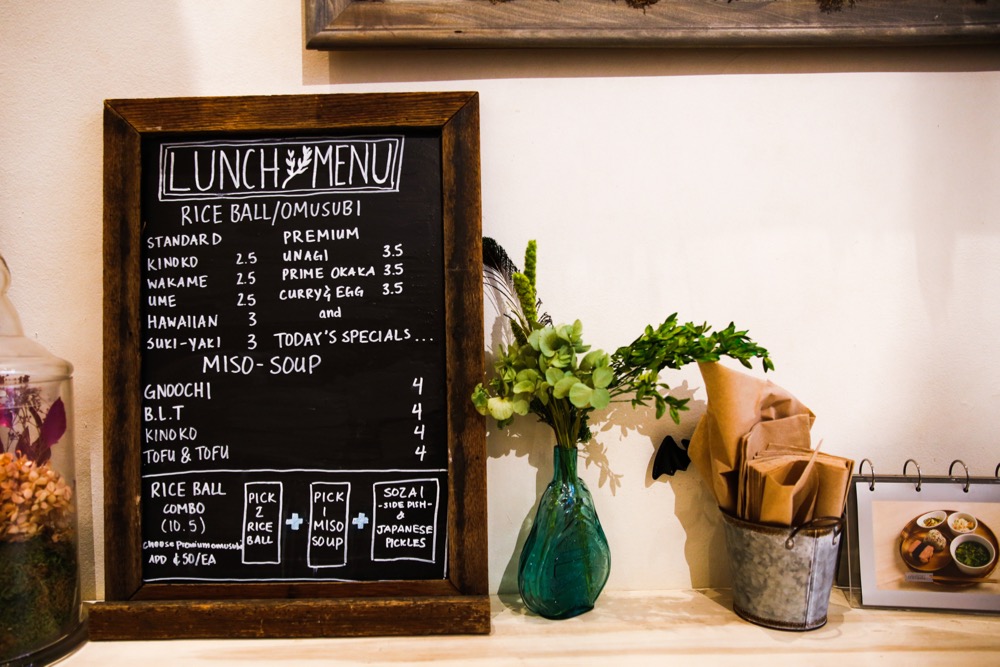 LUNCH MENU
RICE BALL/OMUSUBI
STANDARD
KINOKO 2.5
WAKAME 2.5
UME 2.5
HAWAIIAN 3
SUKI-YAKI 3
PREMIUM
UNAGI 3.5
PRIME OKAKA 3.5
CURRY & EGG 3.5
and
TODAY'S SPECIALS...
MISO-SOUP
GNOOCHI 4
B.L.T 4
KINOKO 4
TOFU & TOFU 4
RICE BALL
COMBO
(10.5)
choose premium omusubi
ADD ¢50/EA
PICK
2
RICE
BALL
+
PICK
1
MISO
SOUP
+
SOZAI
-SIDE DISH-
&
JAPANESE
PICKLES